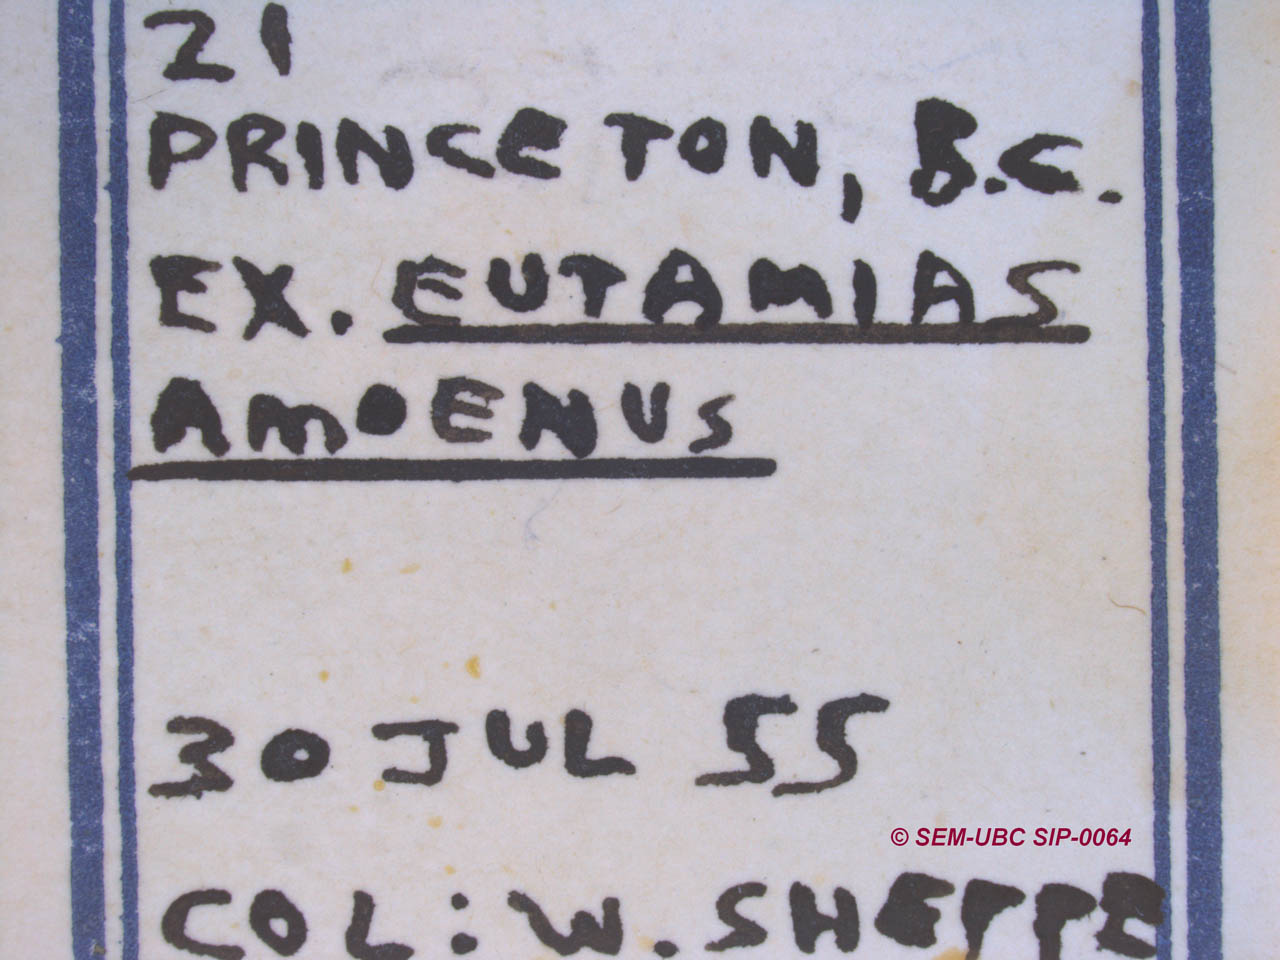 21
PRINCETON, B.C.
EX. EUTAMIAS
AMOENUS
30 JUL 55
© SEM-UBC SIP-0064
COL: W. SHEPPE